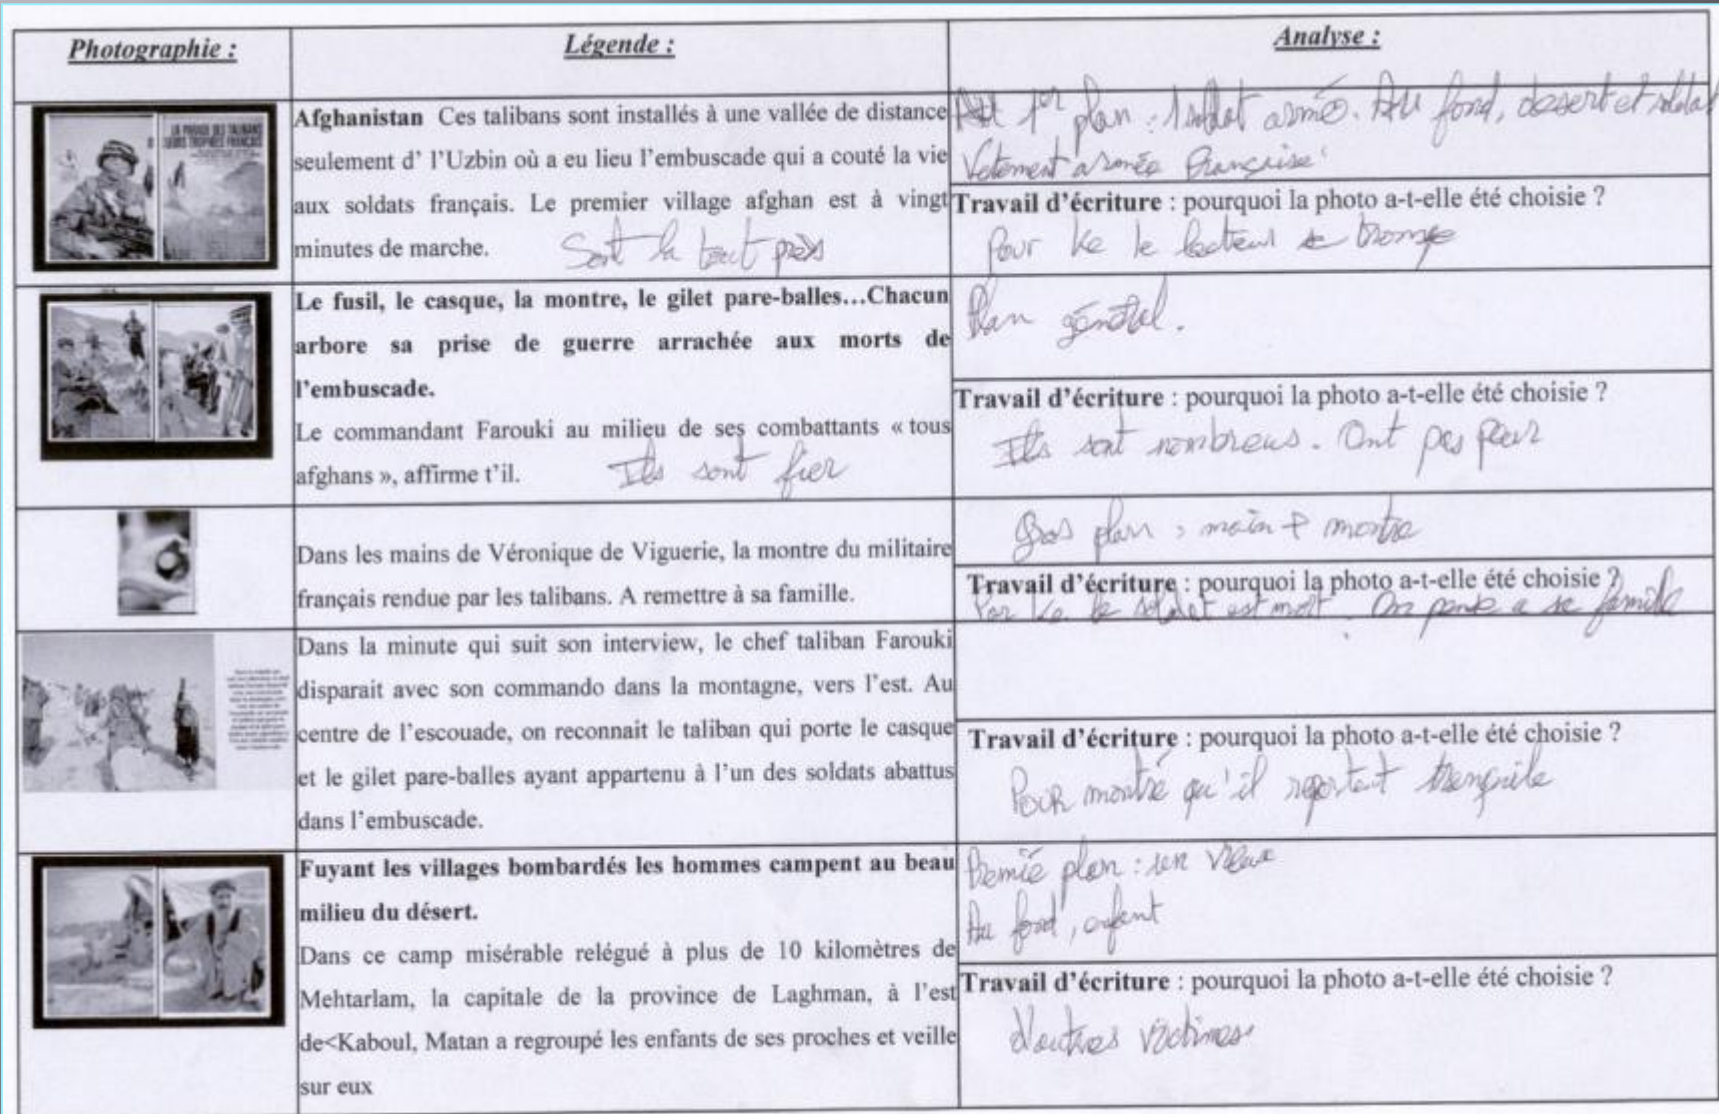 Photographie :
Légende :
Analyse :
LA PARADE DES TALIBANS
LEURS TROPHÉES FRANÇAIS
Afghanistan Ces talibans sont installés à une vallée de distance
seulement d' l'Uzbin où a eu lieu l'embuscade qui a couté la vie
aux soldats français. Le premier village afghan est à vingt
minutes de marche.
Sont la tout près
1er plan : 1 soldat armée. Au fond, desert et soldat
Vetement armée française
Travail d'écriture : pourquoi la photo a-t-elle été choisie ?
Pour ke le lecteur se trompe
Le fusil, le casque, la montre, le gilet pare-balles…Chacun
arbore sa prise de guerre arrachée aux morts de
l'embuscade.
Le commandant Farouki au milieu de ses combattants « tous
afghans », affirme t'il.
Ils sont fier
Plan général.
Travail d'écriture : pourquoi la photo a-t-elle été choisie ?
Ils sont nombreus. Ont pas peur
Dans les mains de Véronique de Viguerie, la montre du militaire
français rendue par les talibans. A remettre à sa famille.
Gros plan : main + montre
Travail d'écriture : pourquoi la photo a-t-elle été choisie ?
ke le soldat est mort. On pense a sa famille
Dans la minute qui suit son interview, le chef taliban Farouki
disparait avec son commando dans la montagne, vers l'est. Au
centre de l'escouade, on reconnait le taliban qui porte le casque
et le gilet pare-balles ayant appartenu à l'un des soldats abattus
dans l'embuscade.
Travail d'écriture : pourquoi la photo a-t-elle été choisie ?
Pour montré qu'il repartent tranquile
Fuyant les villages bombardés les hommes campent au beau
milieu du désert.
Dans ce camp misérable relégué à plus de 10 kilomètres de
Mehtarlam, la capitale de la province de Laghman, à l'est
de<Kaboul, Matan a regroupé les enfants de ses proches et veille
sur eux
Premié plan : un vieux
Au fond, enfant
Travail d'écriture : pourquoi la photo a-t-elle été choisie ?
D'autres victimes